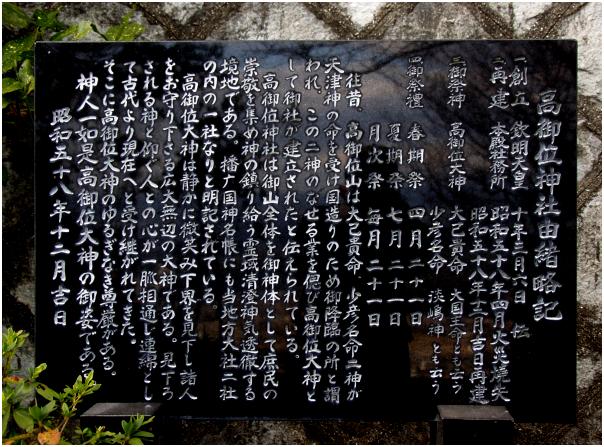 高御位神社由緒略記
一創立　欽明天皇　十年二月六日　伝
二再建　本殿社務所　昭和五十八年四月火災焼失
昭和五十八年十二月吉日再建
三御祭神　高御位大神　大己貴命　大国主命とも云う
少彦名命　淡嶋神とも云う
四御祭禮　春期祭　四月二十一日
夏期祭　七月二十一日
月次祭　毎月二十一日
往昔　高御位山は大己貴命　少彦名命二神が
天津神の命を受け国造りのため御降臨の所と謂
われ、この二神のなせる業を偲び高御位大神と
して御社が建立されたと伝えられている。
高御位神社は御山全体を御神体として庶民の
崇敬を集め神の鎮り給う霊域清澄神気透徹する
境地である。播广国神名帳にも当地方大社二社
の内の一社なりと明記されている。
高御位大神は静かに微笑み下界を見下し諸人
をお守り下さる広大無辺の大神である。見下ろ
される神と仰ぐ人との心が一脈相通じ連綿とし
て古代より現在へと受け継がれてきた。
そこに高御位大神のゆるぎなき尊厳がある。
神人一如是高御位大神の御姿である
昭和五十八年十二月吉日